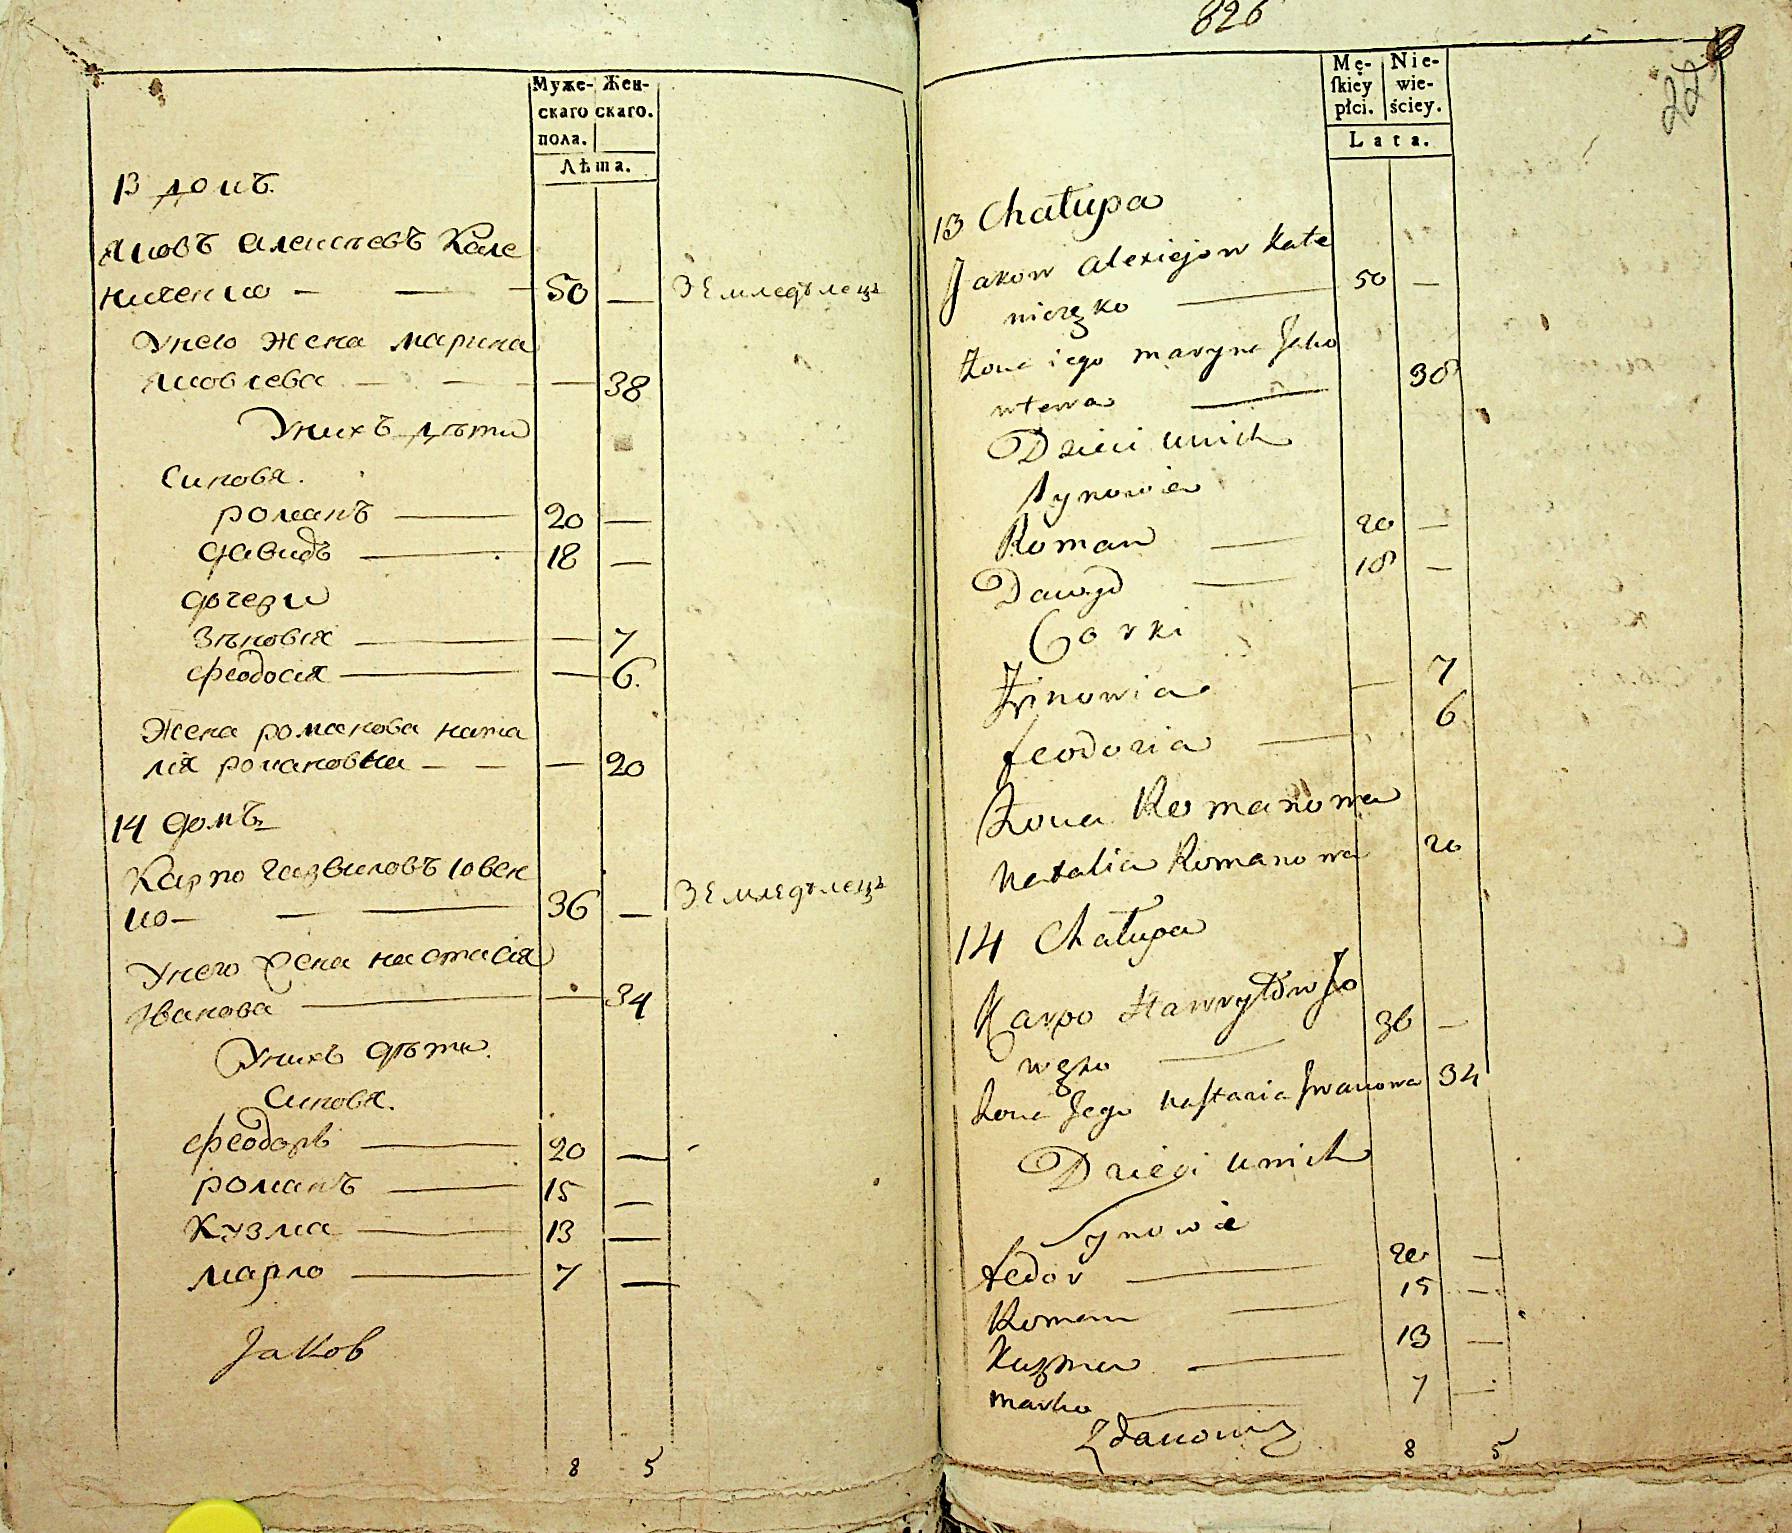 Муже- Жен-
скаго скаго.
пола.
Лѣта.
13 домъ.
Яковъ Алексѣевъ Кале
ниченко — — — 50 — Земледѣлецъ
Унего жена марина
яковлева — — — 38
Унихъ дѣти
Синовя.
романъ — 20 —
давидъ — 18 —
дочери
Зѣновія — — 7
феодосія — — 6.
Жена романова ната
лія романовна — — — 20
14 домъ
Карпо гавриловъ Іовен
ко — — — 36 — Земледѣлецъ
Унего жена настасія
Іванова — — 34
Унихъ дѣти.
Синовя.
феодоръ — 20 —
романъ — 15 —
Кузма — 13 —
марко — 7 —
Jakob
8 5
826
Mę- Nie-
ſkiey wie-
płci. ściey.
Lata.
13 Chałupa
Jakow Alexiejow Kale
niczęko — 50 —
Żona iego maryna Jako
włewa — 38
Dzieci unich
Synowie
Roman — 20 —
Dawyd — 18 —
Corki
Zynowia — 7
feodozia — 6
Żona Romanowa
Natalia Romanowa 20
14 Chałupa
Karpo Hawryłow Jo
węko — 36 —
Żona Jego Naſtazia Jwanowa 34
Dzieci unich
Synowie
fedor — 20 —
Roman — 15 —
Kuzma — 13 —
marko — 7 —
Zdanowicz
8 5